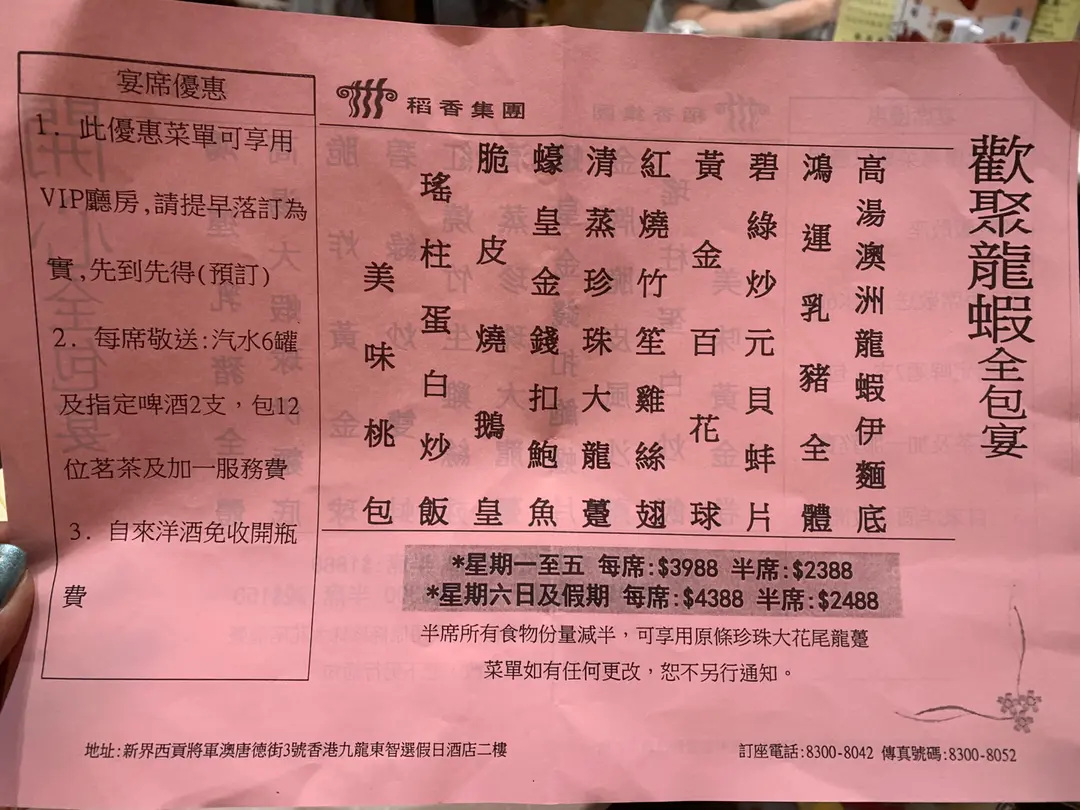 稻香集團
歡聚龍蝦全包宴
高湯澳洲龍蝦伊麵底
鴻運乳豬全體
碧綠炒元貝蚌片
黃金百花球
紅燒竹笙雞絲翅
清蒸珍珠大龍躉
蠔皇金錢扣鮑魚
脆皮燒鵝皇
瑤柱蛋白炒飯
美味桃包
*星期一至五 每席:$3988 半席:$2388
*星期六日及假期 每席:$4388 半席:$2488
半席所有食物份量減半，可享用原條珍珠大花尾龍躉
菜單如有任何更改，恕不另行通知。
宴席優惠
1. 此優惠菜單可享用
VIP廳房,請提早落訂為
實,先到先得(預訂)
2. 每席敬送:汽水6罐
及指定啤酒2支，包12
位茗茶及加一服務費
3. 自來洋酒免收開瓶
費
地址:新界西貢將軍澳唐德街3號香港九龍東智選假日酒店二樓
訂座電話:8300-8042 傳真號碼:8300-8052